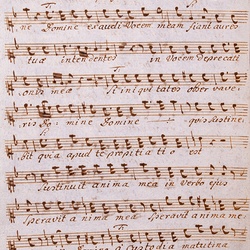 ne Domine exaudi Vocem meam fiant aures
tuæ intendentes in Vocem deprecati
onis meæ Si iniquitates obser vave
ris Domine Domine quis sustine
bit quia apud te propitia ti o est
Sustinuit anima mea in Verbo ejus
Speravit a nima mea Speravit anima me
a Custodia matutina